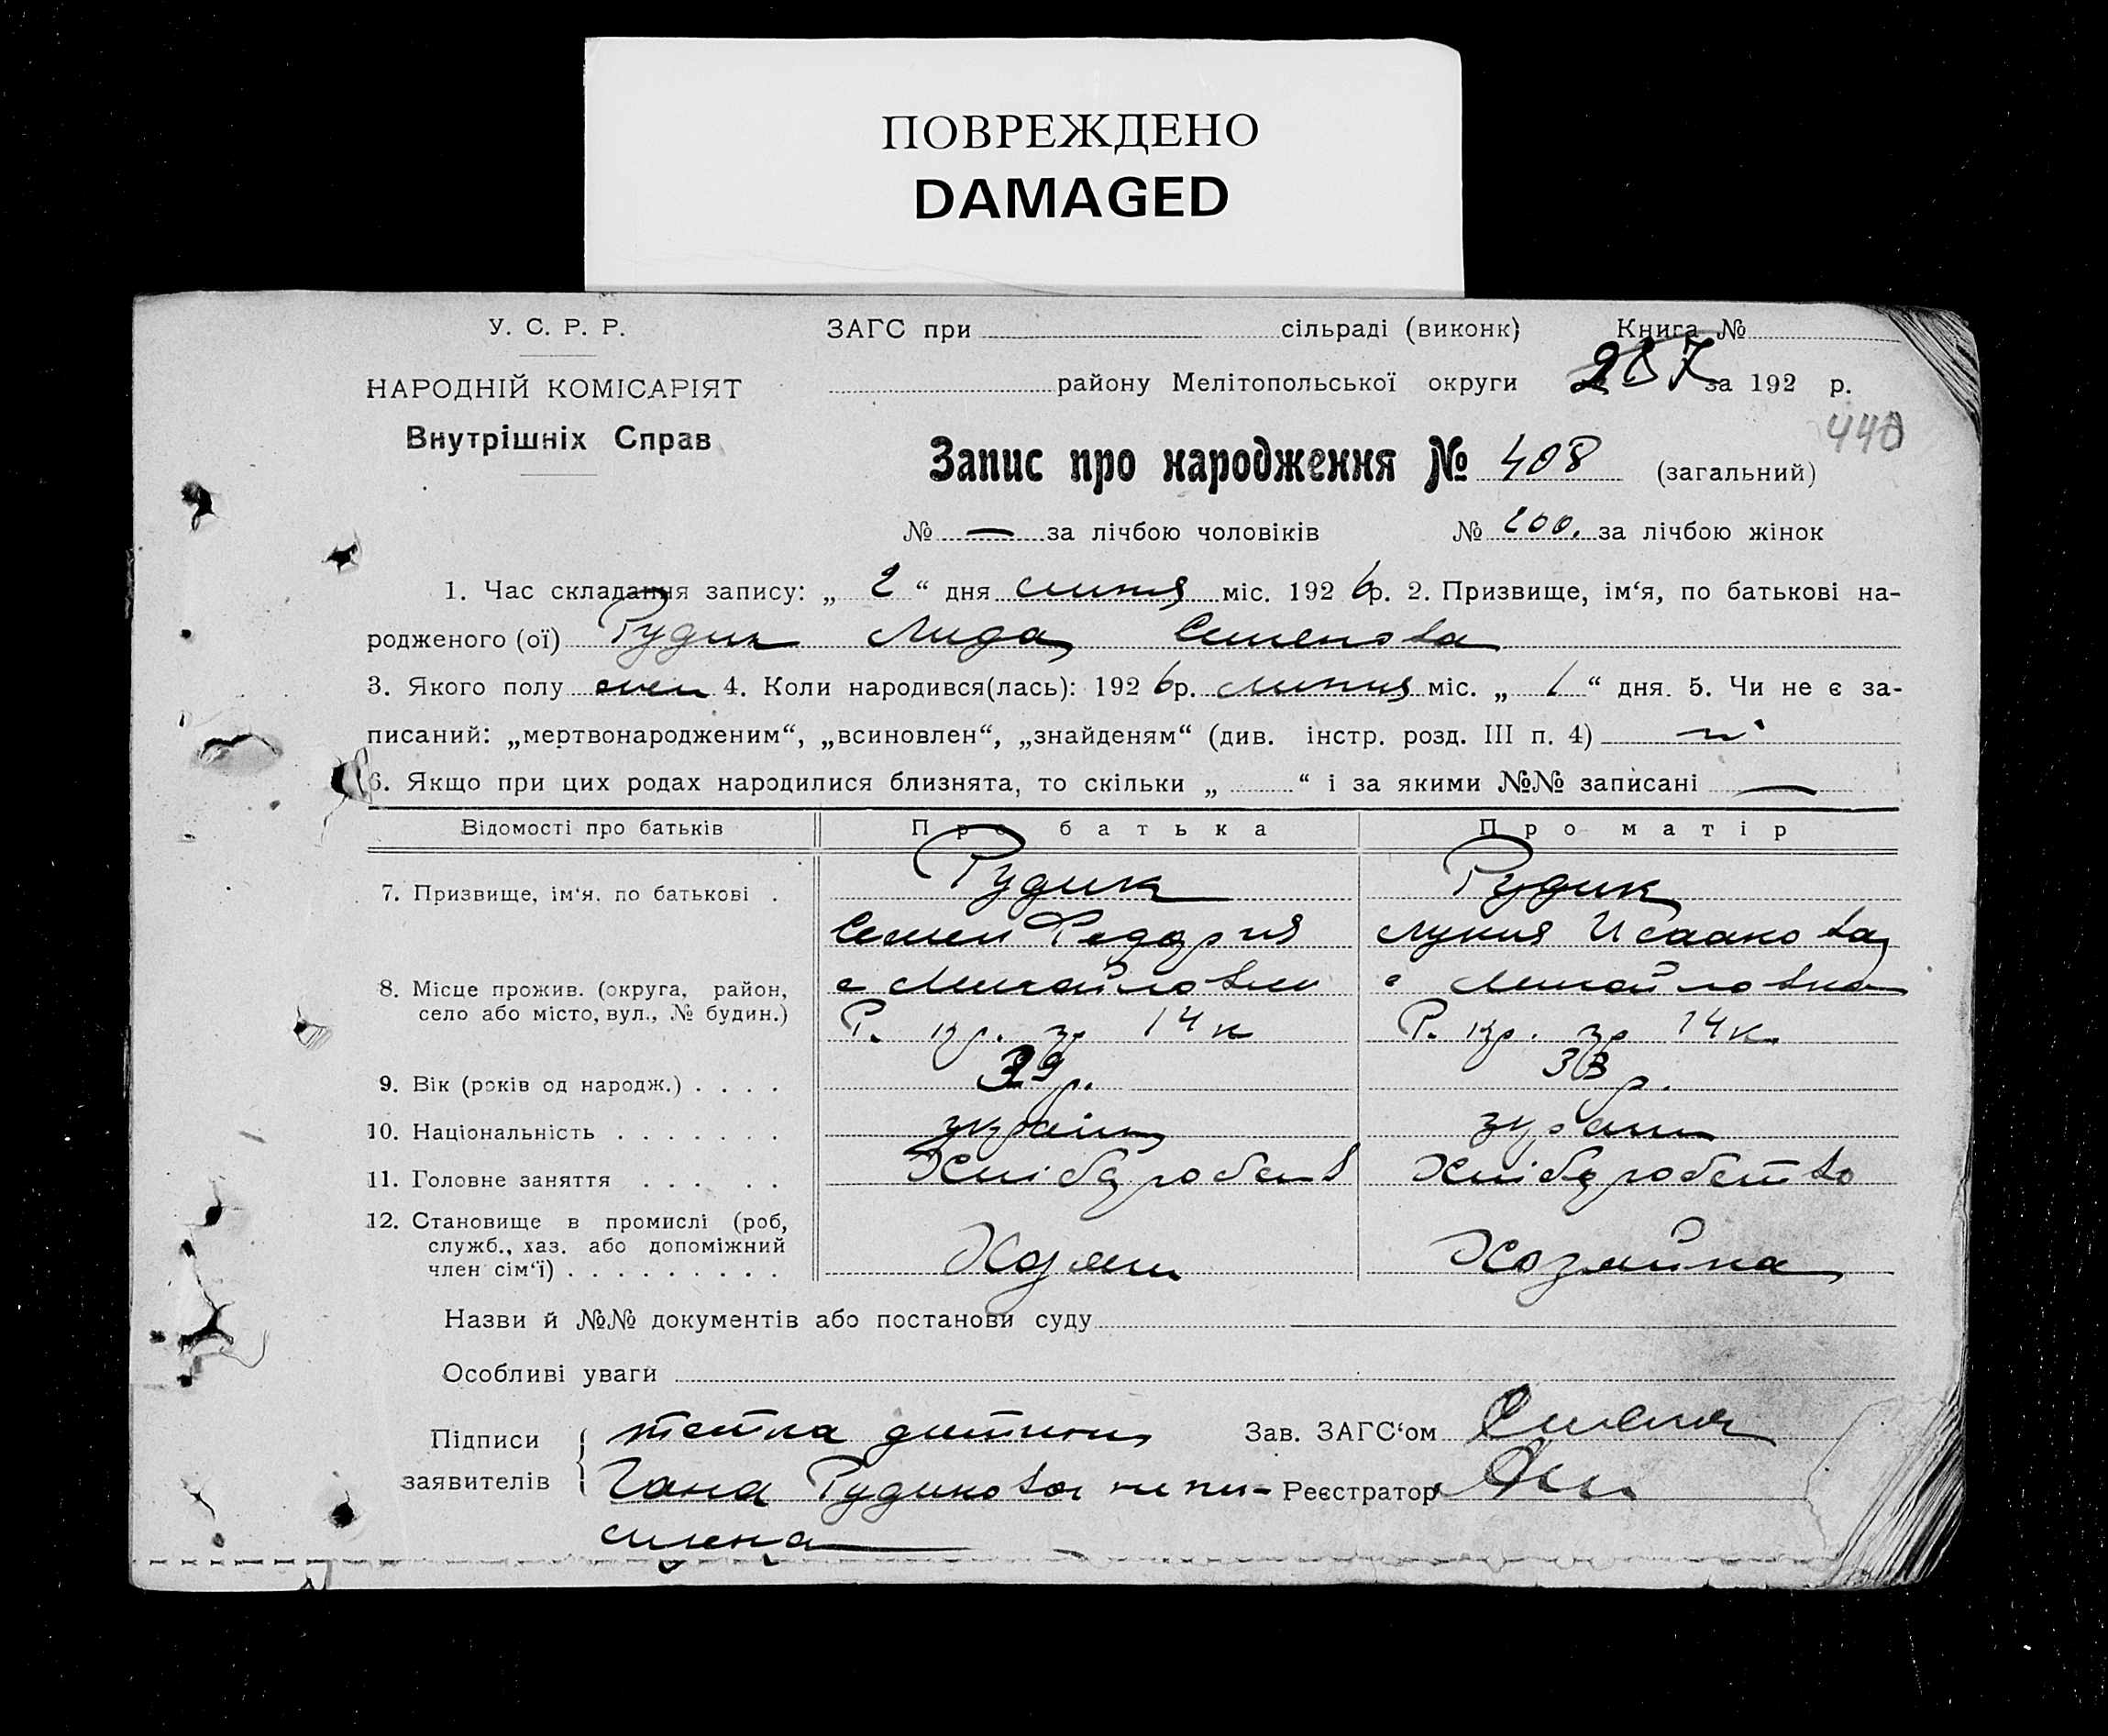 ПОВРЕЖДЕНО
DAMAGED
У. С. Р. Р.
НАРОДНІЙ КОМІСАРІЯТ
Внутрішніх Справ
ЗАГС при сільраді (виконк) Книга №
району Мелітопольської округи 287 за 192 р.
440
Запис про народження № 408 (загальний)
№ — за лічбою чоловіків № 200. за лічбою жінок
1. Час складання запису: „ 2 “ дня липня міс. 1926 р. 2. Призвище, ім‘я, по батькові на-
родженого (ої) Рудик Лида Семенова
3. Якого полу жен 4. Коли народився(лась): 1926 р. липня міс. „ 1 “ дня. 5. Чи не є за-
писаний: „мертвонародженим“, „всиновлен“, „знайденям“ (див. інстр. розд. III п. 4) ні
6. Якщо при цих родах народилися близнята, то скільки „ “ і за якими №№ записані —
Відомості про батьків Про батька Про матір
7. Призвище, ім‘я, по батькові . Рудик Рудик
Семен Федорія Лукия Исаакова
8. Місце прожив. (округа, район, с Михайловки с Михайловка
село або місто, вул., № будин.) Р. 14 к Р. 14 к.
9. Вік (років од народж.) . . . . 39 р. 33 р.
10. Національність . . . . . . . україн
11. Головне заняття . . . . . Хлібороб Хліборобство
12. Становище в промислі (роб,
служб., хаз. або допоміжний
член сім‘ї) . . . . . . . . . Хозяин Хозяйка
Назви й №№ документів або постанови суду
Особливі уваги
Підписи заявителів
тетка дитини
Гана Рудикова не пи-
сменна
Зав. ЗАГС‘ом
Реєстратор